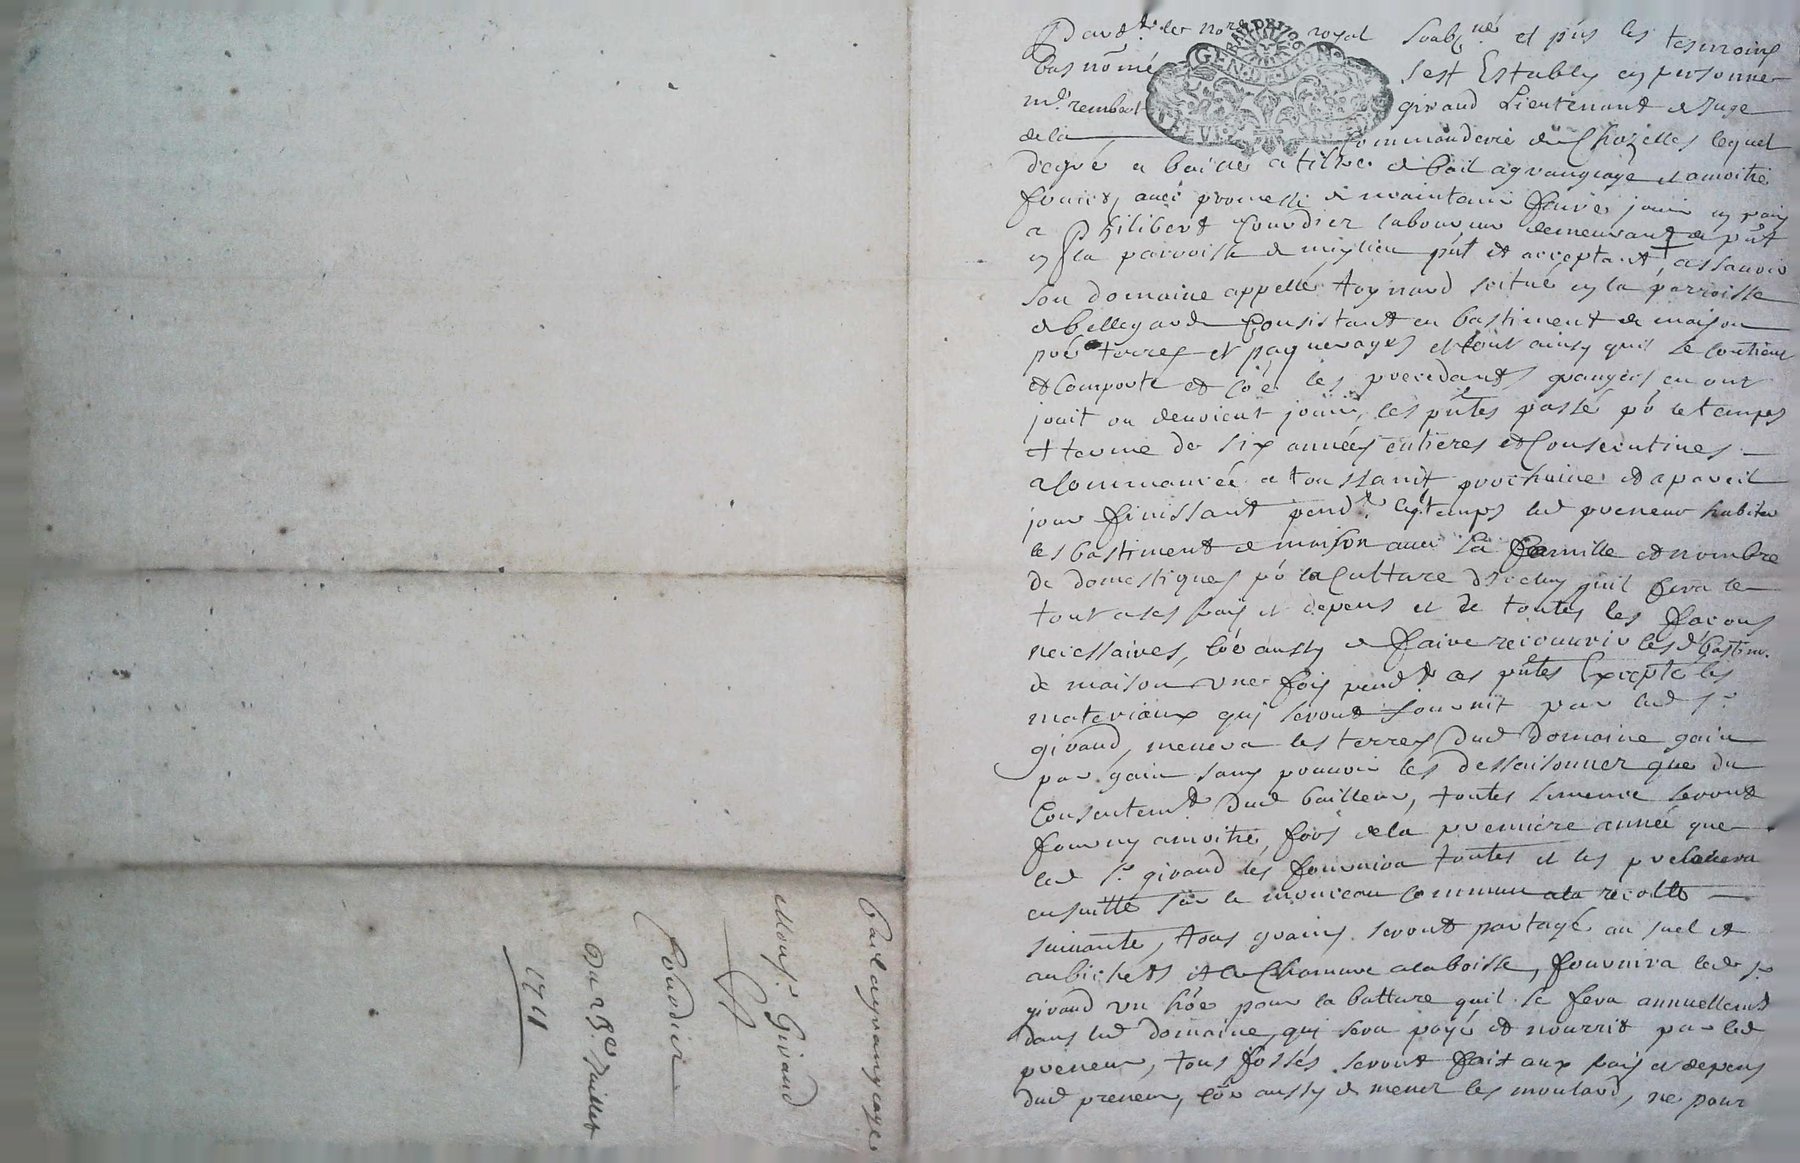 Bail a grangeage
Mons.r Giraud
Fourdier
Du 25e Juillet
1741
GEN·DE·LYON
Pardt le nore royal soubz.né et p̃ns les tesmoins
bas nõmé sest Estably en personne
m.e rembert giraud Lieutenant et Juge
de la Commanderie de Chazelles lequel
de gré a baillé a tiltre de bail a grangeage et amoitié
fruicts, avec promesse de maintenir faire jouir en paix
a Philibert fourdier laboureur demeurant a p̃nt
en la parroisse de mizlieu p̃nt et acceptant, assavoir
son domaine appellé Aynard scitué en la parroisse
de bellegarde Consistant en bastiment de maison
pré terres et paquerages et tout ainsy quil se contient
et Comporte et cõe les precedants grangers en ont
jouit ou devoient jouir, les p̃ntes passé põ le temps
et terme de six années entieres et Consecutives
a Commancée a toussaint prochaine et a pareil
jour finissant pendt. leqtemps led preneur habitera
les bastiment de maison avec sa famille et nombre
de domestiques põ la Culture dicelluy quil fera le
tout a ses frais et depens et de toutes les façons
necessaires, cõe aussy de faire recouvrir lesd bastim.
de maison une fois pendt. ces p̃ntes Excepté les
materiaux quj seront fournit par led s.r
giraud, menera les terres dud domaine gain
par gain sans pouvoir les dessaisonner que du
Consentemt. dud bailleur, toutes semence seront
fourny amoitié, fors de la premiere année que
led s.r giraud les fournira toutes et les prelevera
ensuitte sur le monceau commun a la recolte
suivante, tous grains seront partagé au suel et
au bichets et le Chanvre a la boisse, fournira led s.r
giraud un hõe pour la batture quil se fera annuellemt
dans led domaine, quj sera payé et nourrit par led
preneur, tous fossés seront fait aux frais et depens
dud preneur, cõe aussy de mener les moulard, ne pour